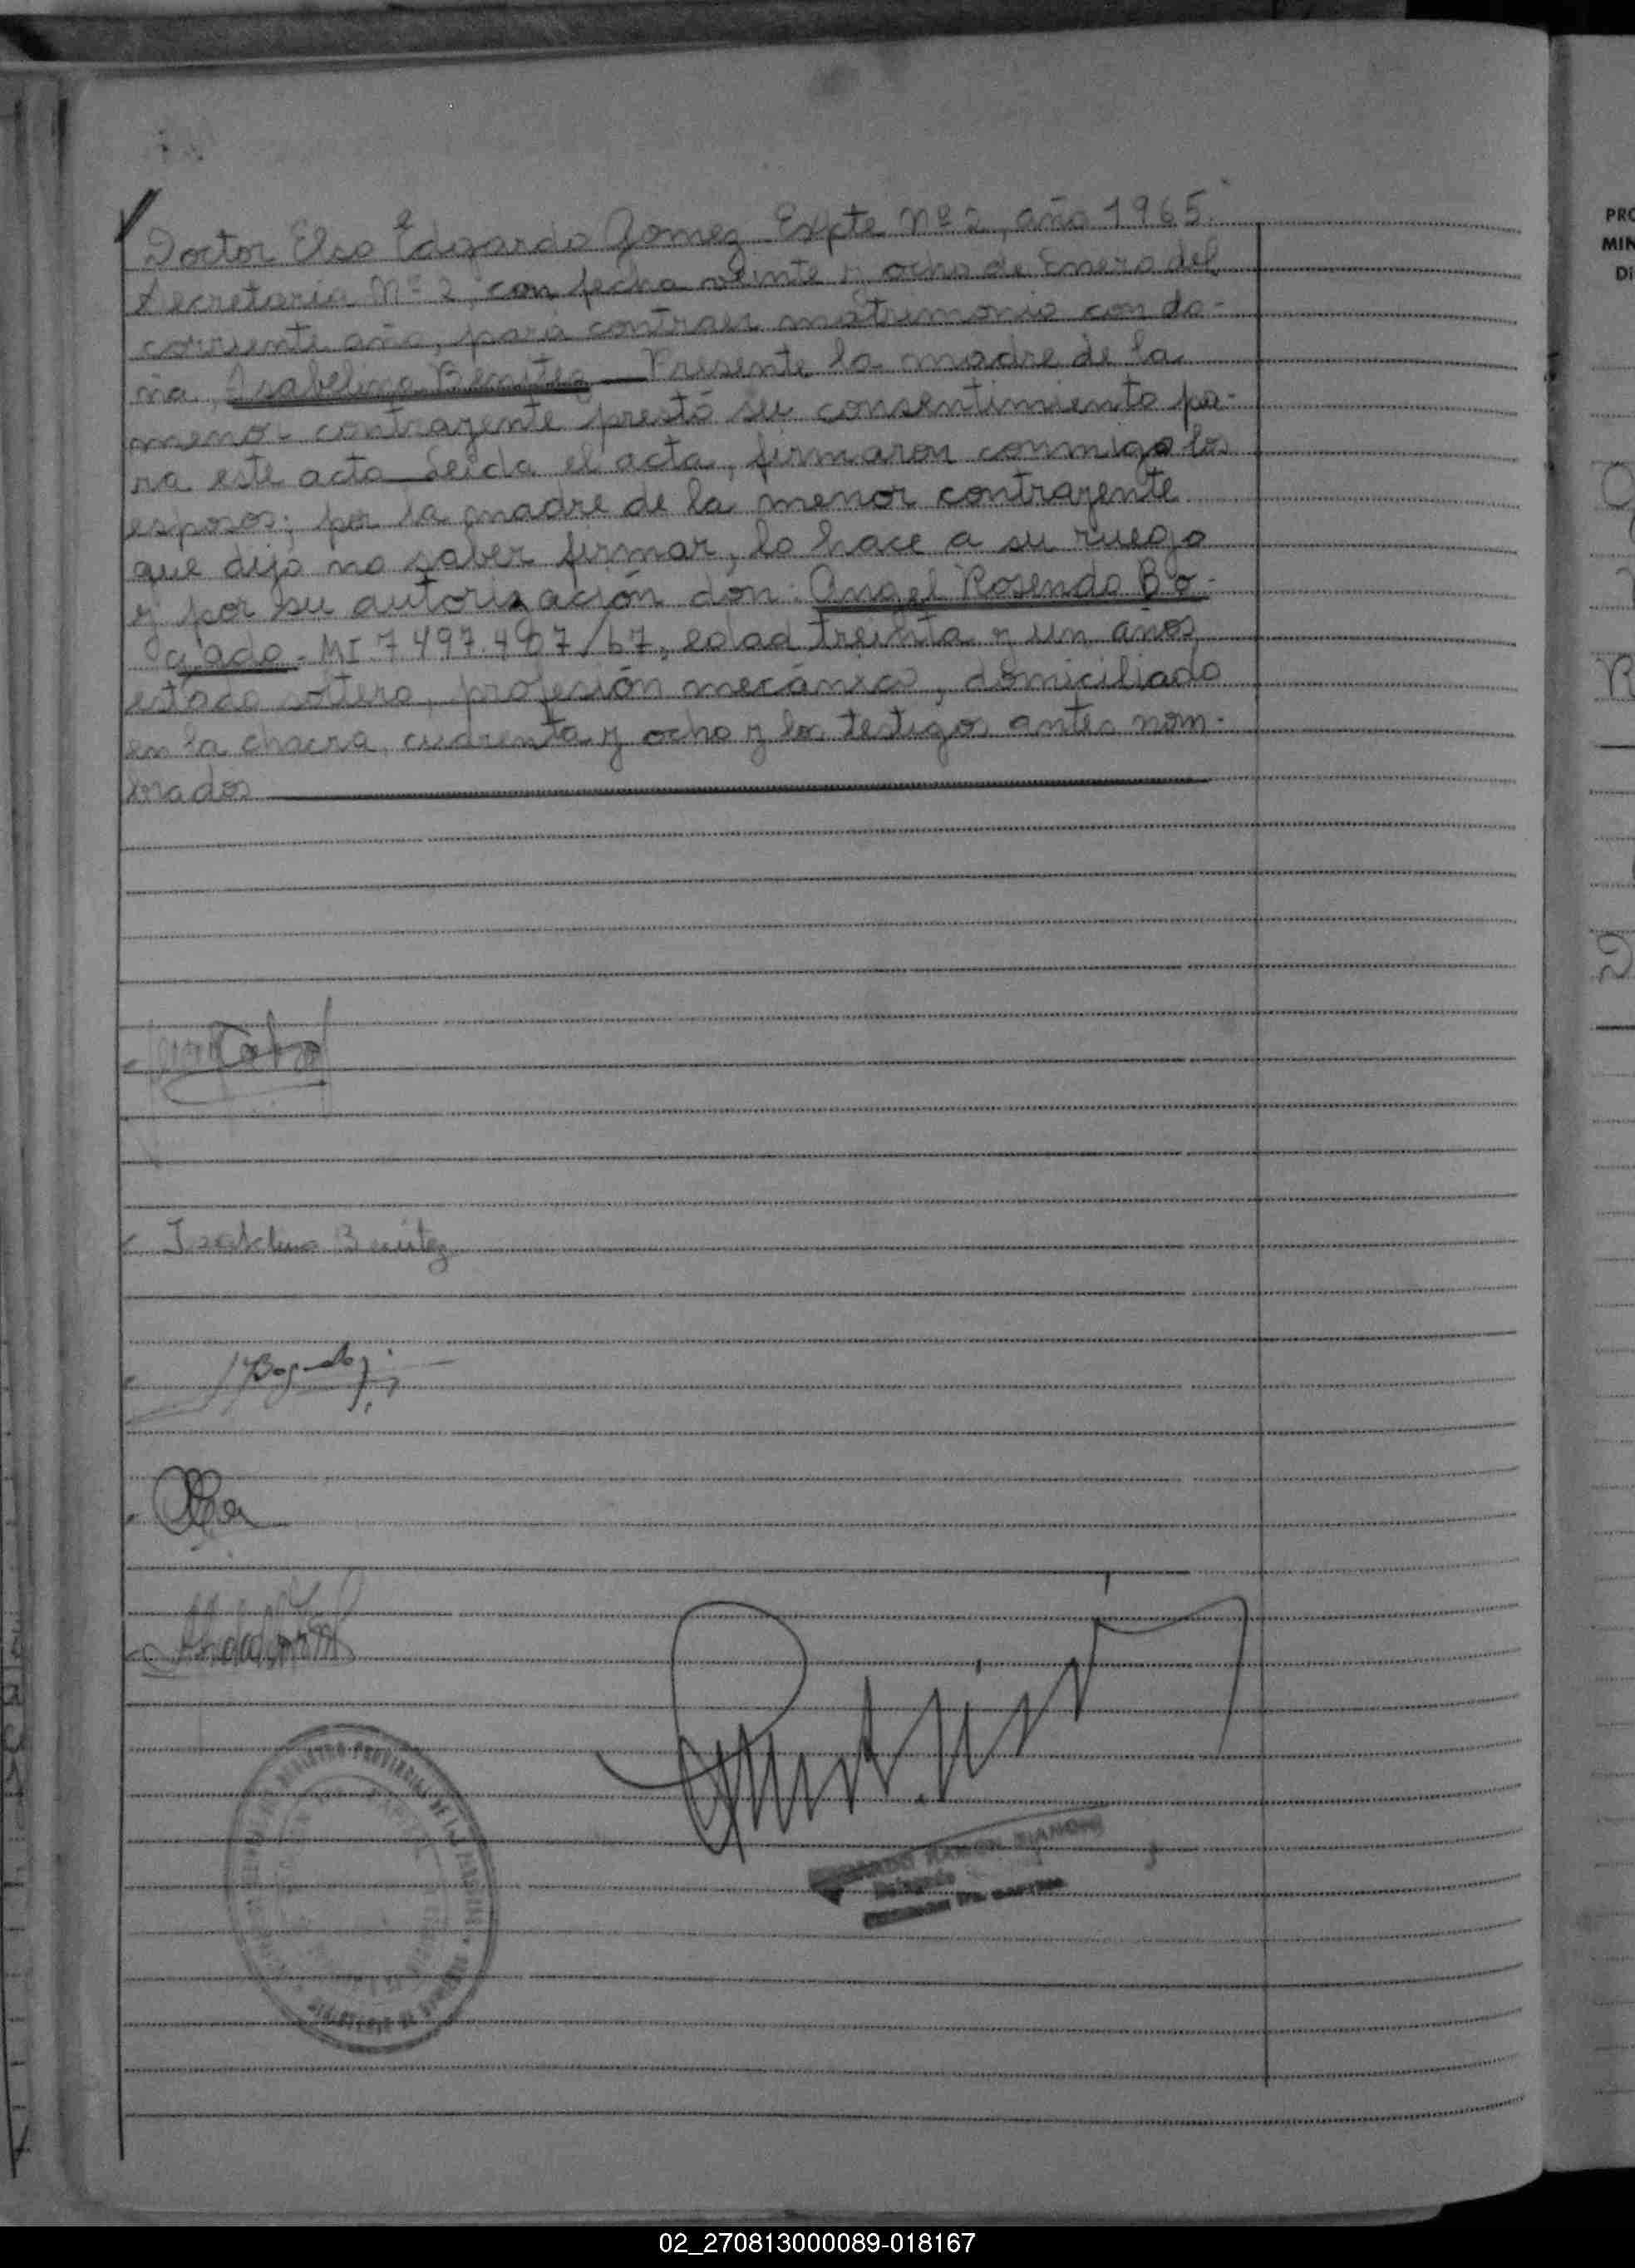 Doctor Elso Edgardo Gomez Expte Nº 2, año 1965.
Secretaria Nº 2, con fecha veinte y ocho de Enero del
corriente año, para contraer matrimonio con do-
ña, Isabelina Benitez — Presente la madre de la
menor contrayente prestó su consentimiento pa-
ra este acto Leida el acta, firmaron conmigo los
esposos; por la madre de la menor contrayente
que dijo no saber firmar, lo hace a su ruego
y por su autorización don: Angel Rosendo Bo-
gado - MI 7.497.
edad treinta y un años,
estado soltero, profesión mecánico, domiciliado
en la chacra cuarenta y ocho y los testigos antes nom-
brados
Isabelina Benitez
Bogado
REGISTRO PROVINCIAL DE LAS PERSONAS
RAMON
Delegado
PRO
MIN
DI
02_270813000089-018167